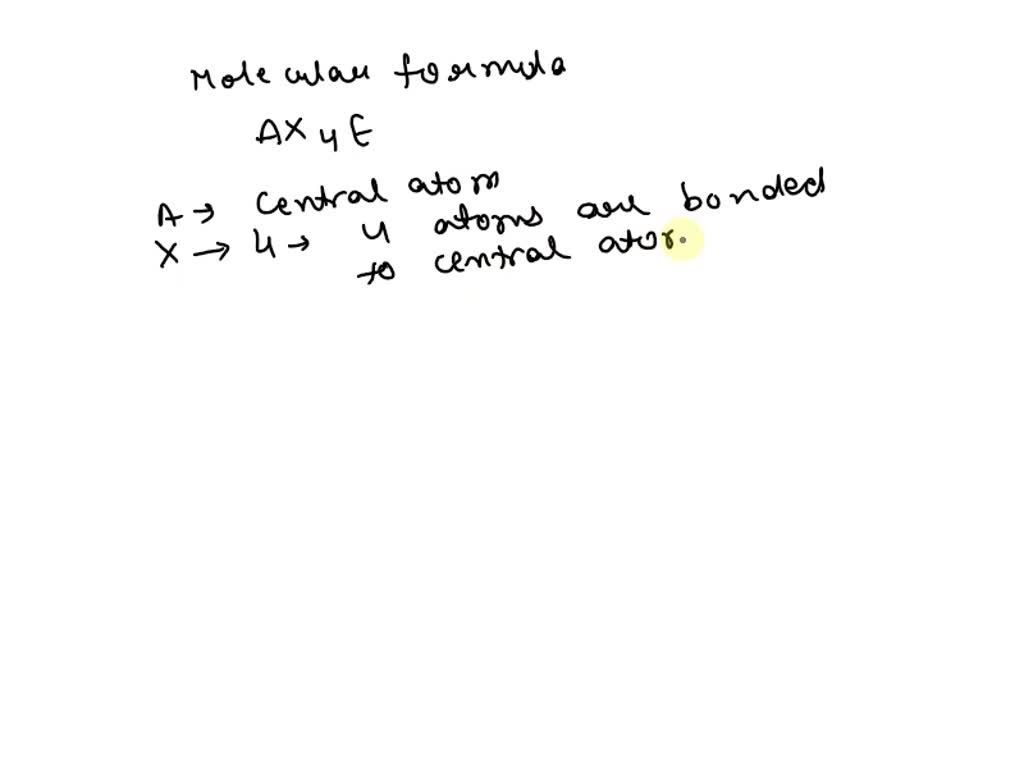 Molecular formula
AX4E
A → central atom
X → 4 → 4 atoms are bonded
to central ator